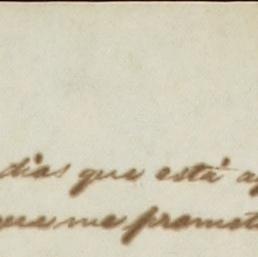 dias que está
que me promet